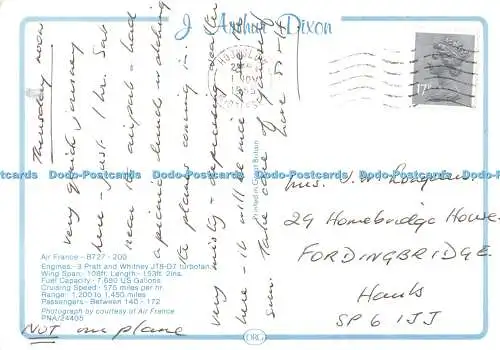 J Arthur Dixon
Thursday noon
very quick journey
here - just 1 hr. Sat
near the airport & had
a picnic lunch watching
the planes coming in.
very misty & depressing weather
here - it will be nice to see the
sun. Take care of yourself
Love
HOUNSLOW
17p
Printed in Great Britain
Dodo-Postcards Dodo-Postcards Dodo-Postcards Dodo-Postcards Dodo-Postcards
Mrs. J. W.
29 Homebridge House
FORDINGBRIDGE
Hants
SP6 1JJ
Air France - B727 - 200
Engines:- 3 Pratt and Whitney JT8-D7 turbofans.
Wing Span: 108ft. Length:- 153ft. 2ins.
Fuel Capacity:- 7,680 US Gallons
Cruising Speed:- 575 miles per hr.
Range:- 1,200 to 1,450 miles
Passengers:- Between 140 - 172
Photograph by courtesy of Air France
PNA/24405
NOT our plane
DRG